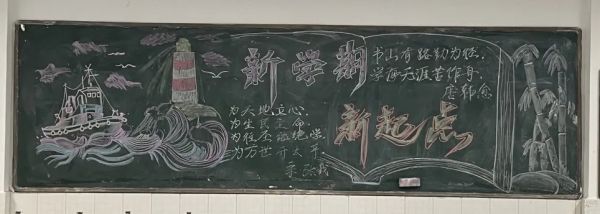 新学期
为天地立心
为生民立命
为往圣继绝学
为万世开太平
书山有路勤为径
学海无涯苦作舟
新起点